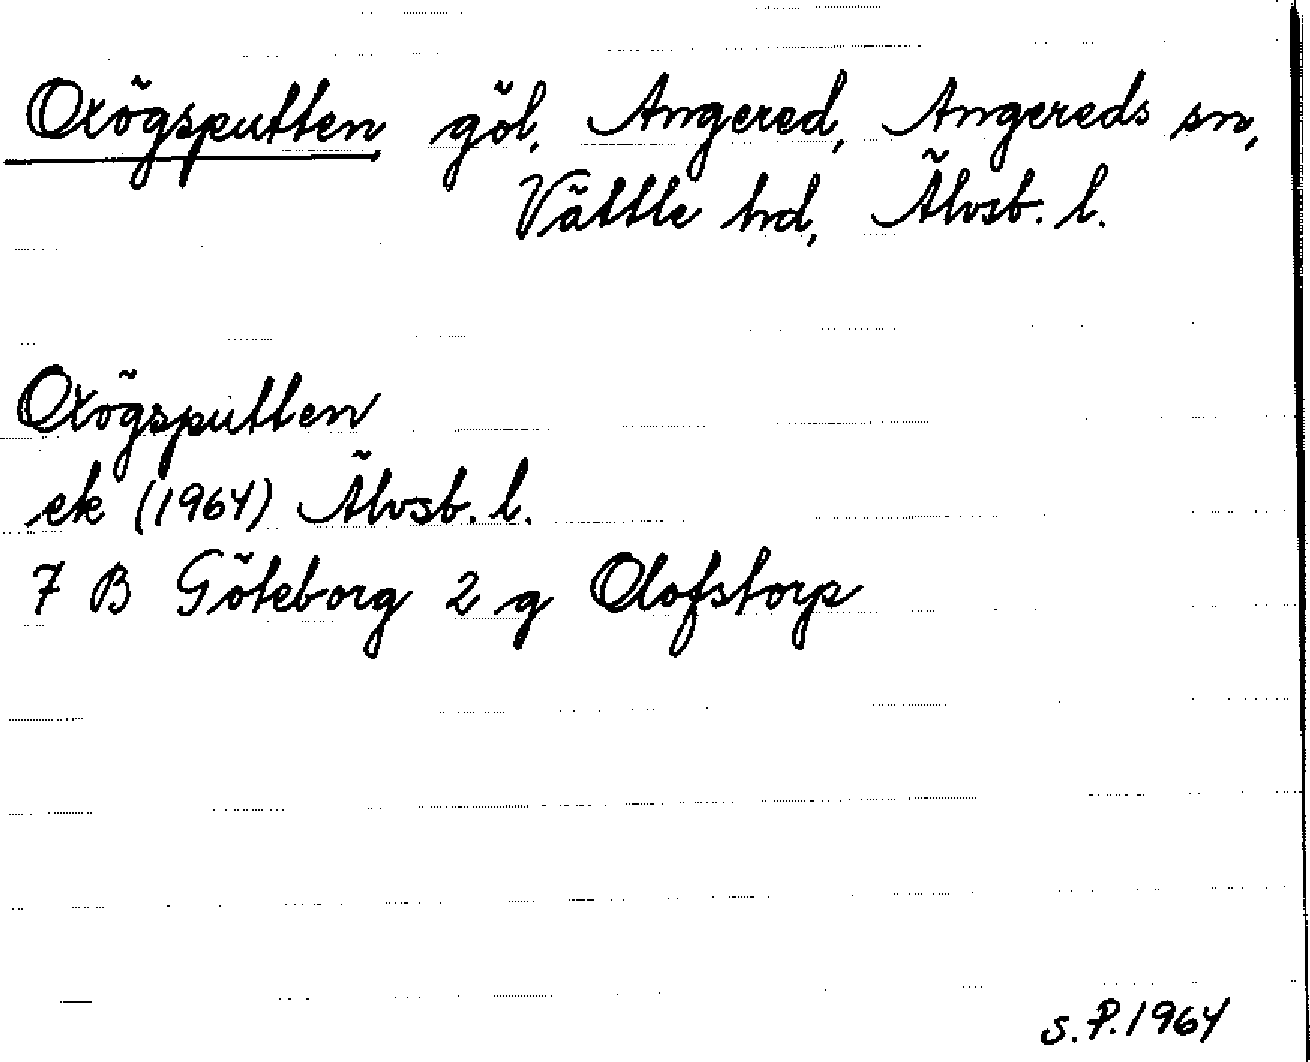 Oxögsputten göl, Angered, Angereds sn,
Vättle hd, Älvsb. l.
Oxögsputten
ek (1964) Älvsb. l.
7 B Göteborg 2 g Olofstorp
S.P. 1964